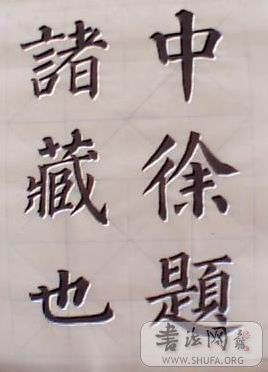 中徐題
諸藏也
書法网
WWW.SHUFA.ORG